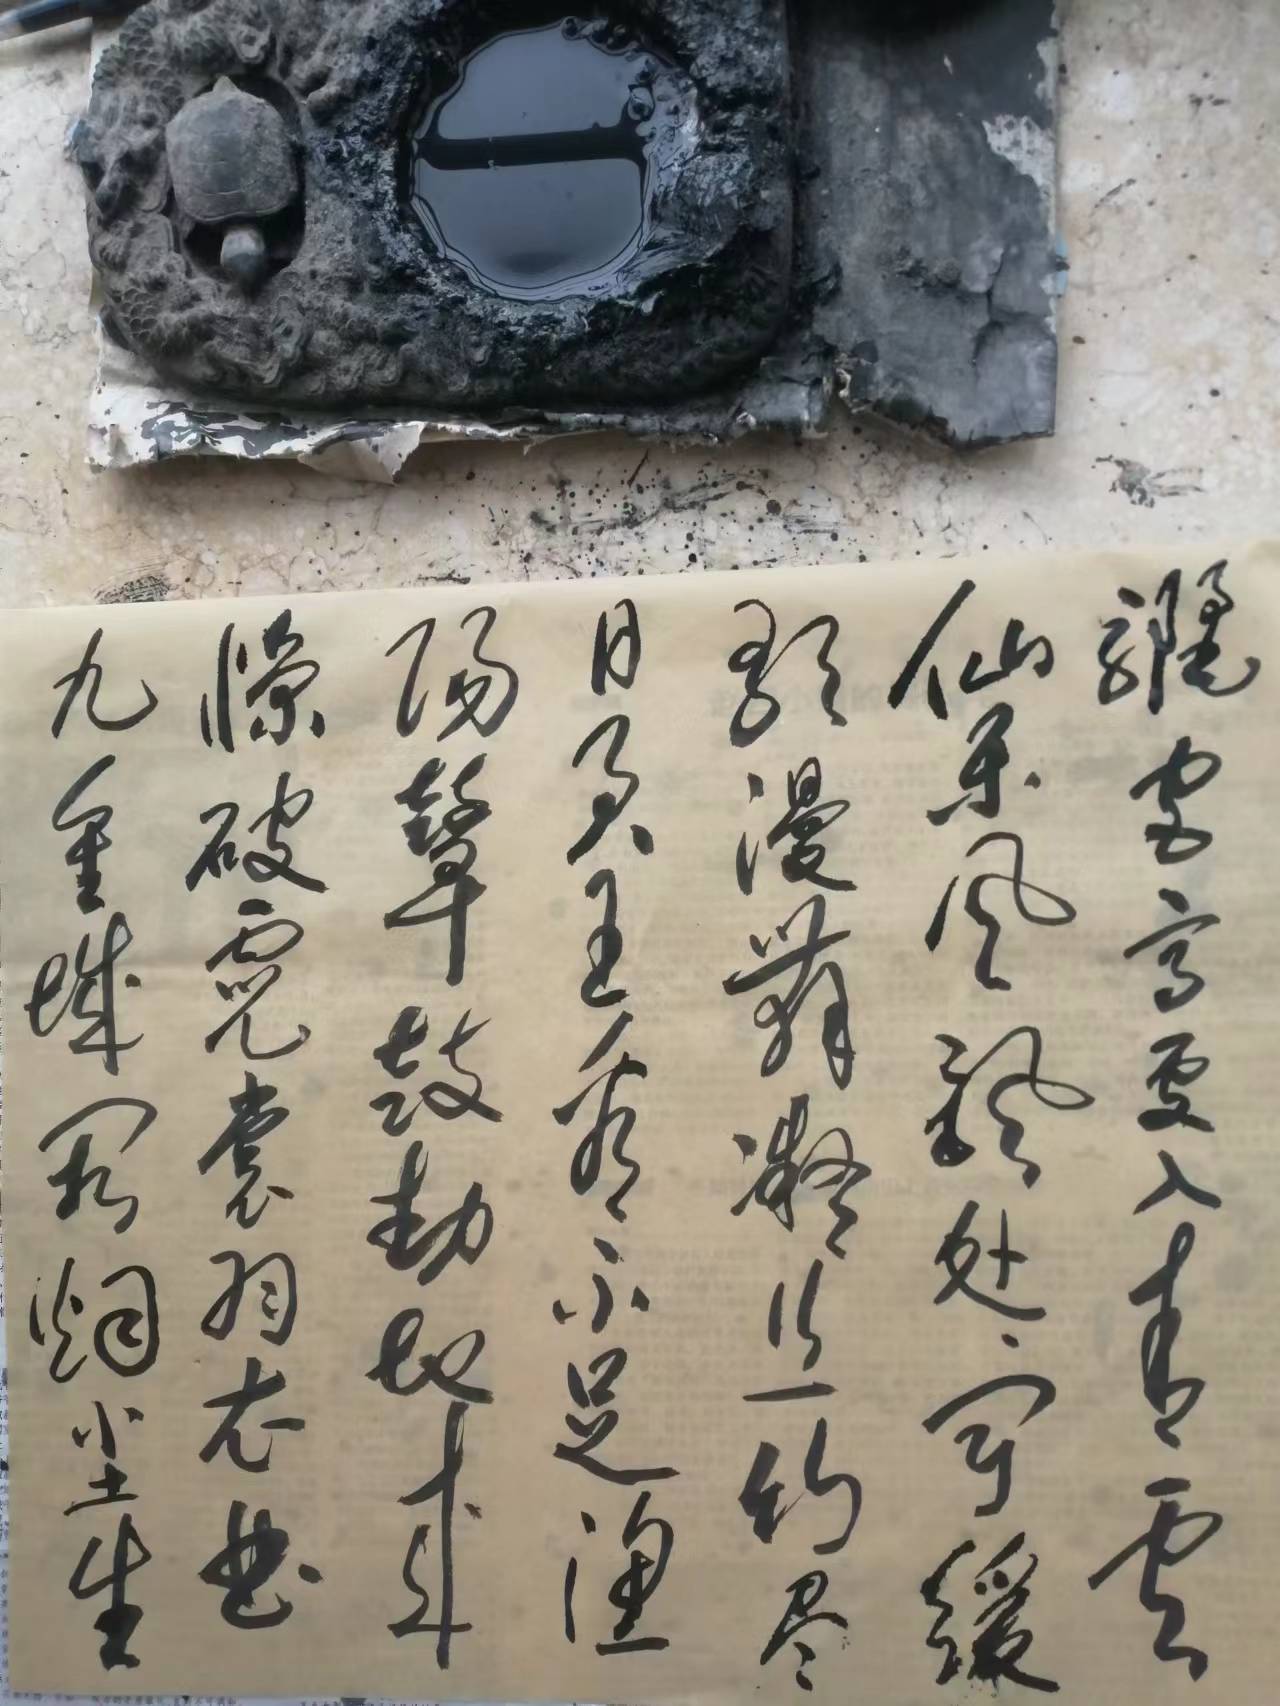 骊宫高处入青云
仙乐风飘处处闻缓
歌漫舞凝丝竹尽
日君王看不足渔
阳鼙鼓动地来
惊破霓裳羽衣曲
九重城阙烟尘生